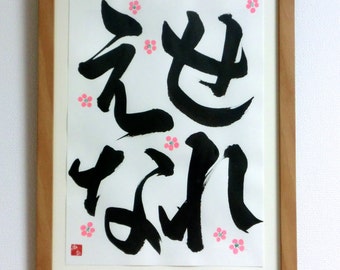 せれ
えな